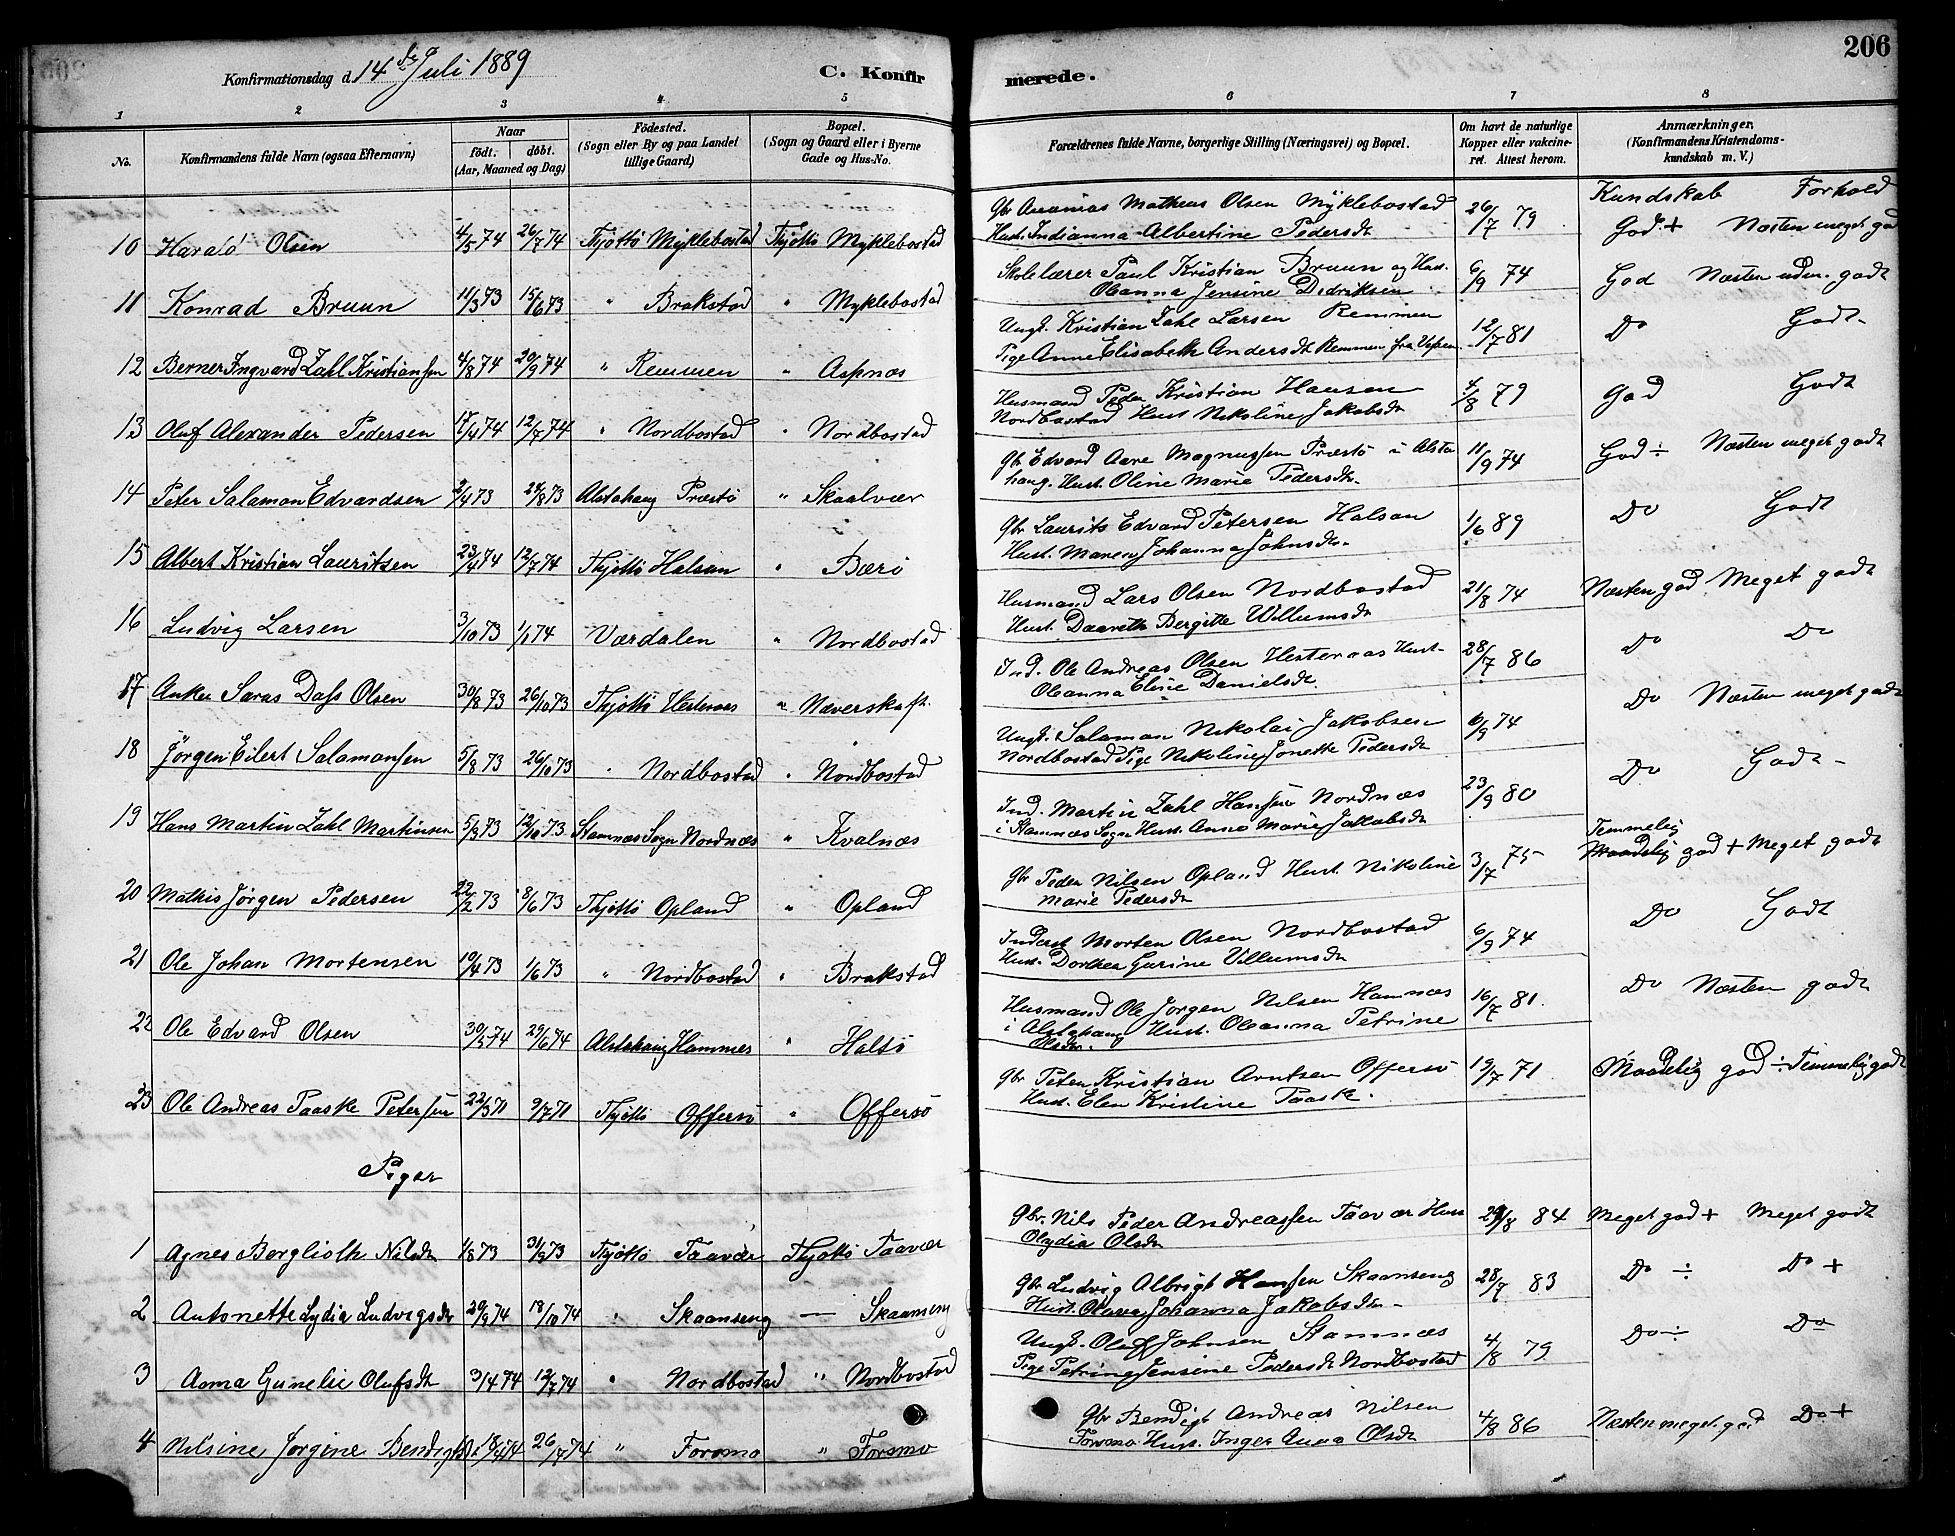 206
Konfirmationsdag d. 14de Juli 1889
C. Konfirmerede.
1 2 3 4 5 6 7 8
No. Konfirmandens fulde Navn (ogsaa Efternavn) Naar født. døbt. (Aar, Maaned og Dag) Födested. (Sogn eller By og paa Landet tillige Gaard) Bopæl. (Sogn og Gaard eller i Byerne Gade og Hus-No. Forældrenes fulde Navne, borgerlige Stilling (Næringsvei) og Bopæl. Om havt de naturlige Kopper eller vaccineret. Attest herom. Anmærkninger, (Konfirmandens Kristendomskundskab m. V.)
Kundskab Forhold
10 Harald Olsen 4/5 74 26/7 74 Thjøttø Myklebostad Thjøttø Myklebostad Gbr Ananias Mathias Olsen Myklebostad 26/7 79 God + Næsten meget godt
Hust. Indianna Albertine Pedersdt
11 Konrad Bruun 11/3 73 15/6 73 " Brakstad " Myklebostad Skolelærer Paul Kristian Bruun og Hust. 6/9 74 God Næsten uden. godt
Oleanna Jensine Didriksen
12 Berner Ingvard Zahl Kristiansen 4/8 74 20/9 74 " Remmen " Aspnæs Ungk. Kristian Zahl Larsen Remmen 12/7 81 Do Godt
Pige Anne Elisabeth Andersdt Remmen fra Vefsen
13 Oluf Alexander Pedersen 17/4 74 12/7 74 " Nordbostad " Nordbostad Husmand Peder Kristian Hansen 4/8 79 God Godt
Nordbostad Hust Nikoline Jakobsdt
14 Peter Salamon Edvardsen 2/4 73 24/8 73 Alstahaug Præstø " Skaalvær Gbr Edvard Aare Magnussen Præstø i Alsta 11/9 74 God ÷ Næsten meget godt
haug. Hust. Oline Marie Pedersdt.
15 Albert Kristian Lauritsen 23/4 74 12/7 74 Thjøttø Halsan " Bærø Gbr Laurits Edvard Petersen Halsan 1/6 89 Do Godt
Hust. Maren Johanna Johnsdt.
16 Ludvig Larsen 3/10 73 1/1 74 Værdalen " Nordbostad Husmand Lars Olsen Nordbostad 21/8 74 Næsten god Meget godt
Hust. Daareth Bergitte Willumsdt
17 Anker Saras Dass Olsen 30/8 73 26/10 73 Thjøttø Hestenæs " Næverskaft. Ind. Ole Andreas Olsen Hestenæs Hust. 28/7 86 Do Do
Oleanna Eline Danielsdt
18 Jørgen Eilert Salamonsen 5/8 73 26/10 73 " Nordbostad " Nordbostad Ungk. Salamon Nikolai Jakobsen 6/9 74 Do Næsten meget godt
Nordbostad Pige Nikoline Jonette Pedersdt
19 Hans Martin Zahl Martinsen 5/8 73 12/10 73 Stamnæs Sogn Nordnæs " Kvalnæs Ind. Martin Zahl Hansen Nordnæs 23/9 80 Do Godt
i Stamnæs Sogn Hust. Anne Marie Jakobsdt
20 Mathis Jørgen Pedersen 22/2 73 8/6 73 Thjøttø Opland " Opland Gbr Peder Nilsen Opland Hust. Nikoline 3/7 75 Temmelig Maadelig god + Meget godt
Marie Pedersdt
21 Ole Johan Mortensen 10/4 73 1/6 73 " Nordbostad " Brakstad Inderst Morten Olsen Nordbostad 6/9 74 Do Godt
Hust. Dorthea Gurine Villumsdt
22 Ole Edvard Olsen 30/5 74 29/6 74 Alstahaug Hamnes " Haltø Husmand Ole Jørgen Nilsen Hamnæs 16/7 81. Do Næsten godt
i Alstahaug Hust. Oleanna Petrine
Olsdtr.
23 Ole Andreas Taaske Petersen 22/3 71 9/7 71 Thjøttø Offersø " Offersø Gbr Peter Kristian Arntsen Offersø 19/7 71 Maadelig god ÷ Temmelig godt
Hust. Elen Kristine Taaske.
Piger
1 Agnes Borglioth Nilsdt 1/8 73 31/8 73 Thjøttø Taavær Thjøttø Taavær Gbr. Nils Peder Andreassen Taavær Hust 29/8 84 Meget god + Meget godt
Olydia Olsdt
2 Antonette Lydia Ludvigsdt 20/9 74 18/10 74 " Skaanseng — Skaanseng Gbr Ludvig Albrigt Hansen Skaanseng 28/7 83 Do ÷ Do +
Hust. Olava Johanna Jakobsdtr.
3 Anna Gunelie Olufsdt 3/4 74 12/7 74 " Nordbostad " Nordbostad Ungk. Oluf Johnsen Stamnæs 4/8 79 Do ÷ Do
Pige Petrine Jensine Pedersdt Nordbostad
4 Nilsine Jørgine Bendigtsdt 18/4 74 26/7 74 " Forsmo " Forsmo Gbr Bendigt Andreas Nilsen 4/8 86 Næsten meget god Do +
Forsmo Hust. Inger Anna Olsdt